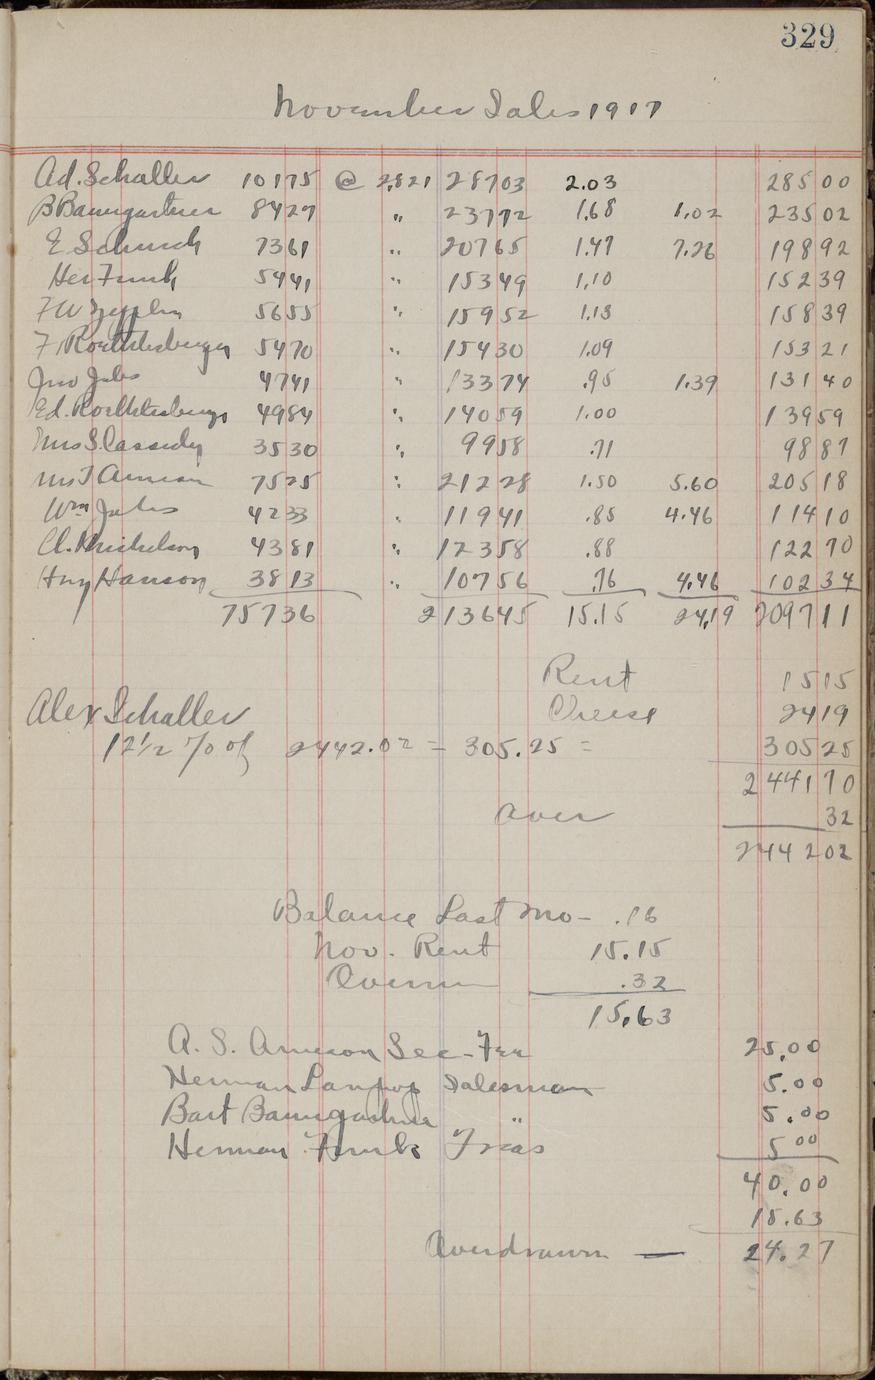 329
November Sales 1917
Ad. Schaller 10175 @ 2.821 28703 2.03 285 00
B Baumgartner 8427 " 23772 1.68 1.02 235 02
E Schuch 7361 " 20765 1.47 7.26 198 92
Her Funk 5441 " 15349 1.10 152 39
F W 5655 " 15952 1.13 158 39
F. Roethlisberger 5470 " 15430 1.09 153 21
Jno Jabs 4741 " 13374 .95 1.39 131 40
Ed. Roethlisberger 4984 " 14059 1.00 139 59
Mrs S. Cassidy 3530 " 9958 .71 98 87
Mrs T Arneson 7525 " 21228 1.50 5.60 205 18
Wm Jabs 4233 " 11941 .85 4.46 114 10
A. Michelson 4381 " 12358 .88 122 70
Hny Hanson 3813 " 10756 .76 4.46 102 34
75736 213645 15.15 24.19 2097 11
Rent 15 15
Alex Schaller Cheese 24 19
12 1/2 % of 2442.02 = 305.25 = 305 25
2441 70
Over 32
2442 02
Balance Last Mo - .16
Nov. Rent 15.15
Overrun .32
15.63
A. S. Arneson Sec - Fee 25.00
Herman Salesman 5.00
Bart Baumgartner " 5.00
Herman Funk Treas 5 00
40.00
15.63
Overdrawn — 24.27